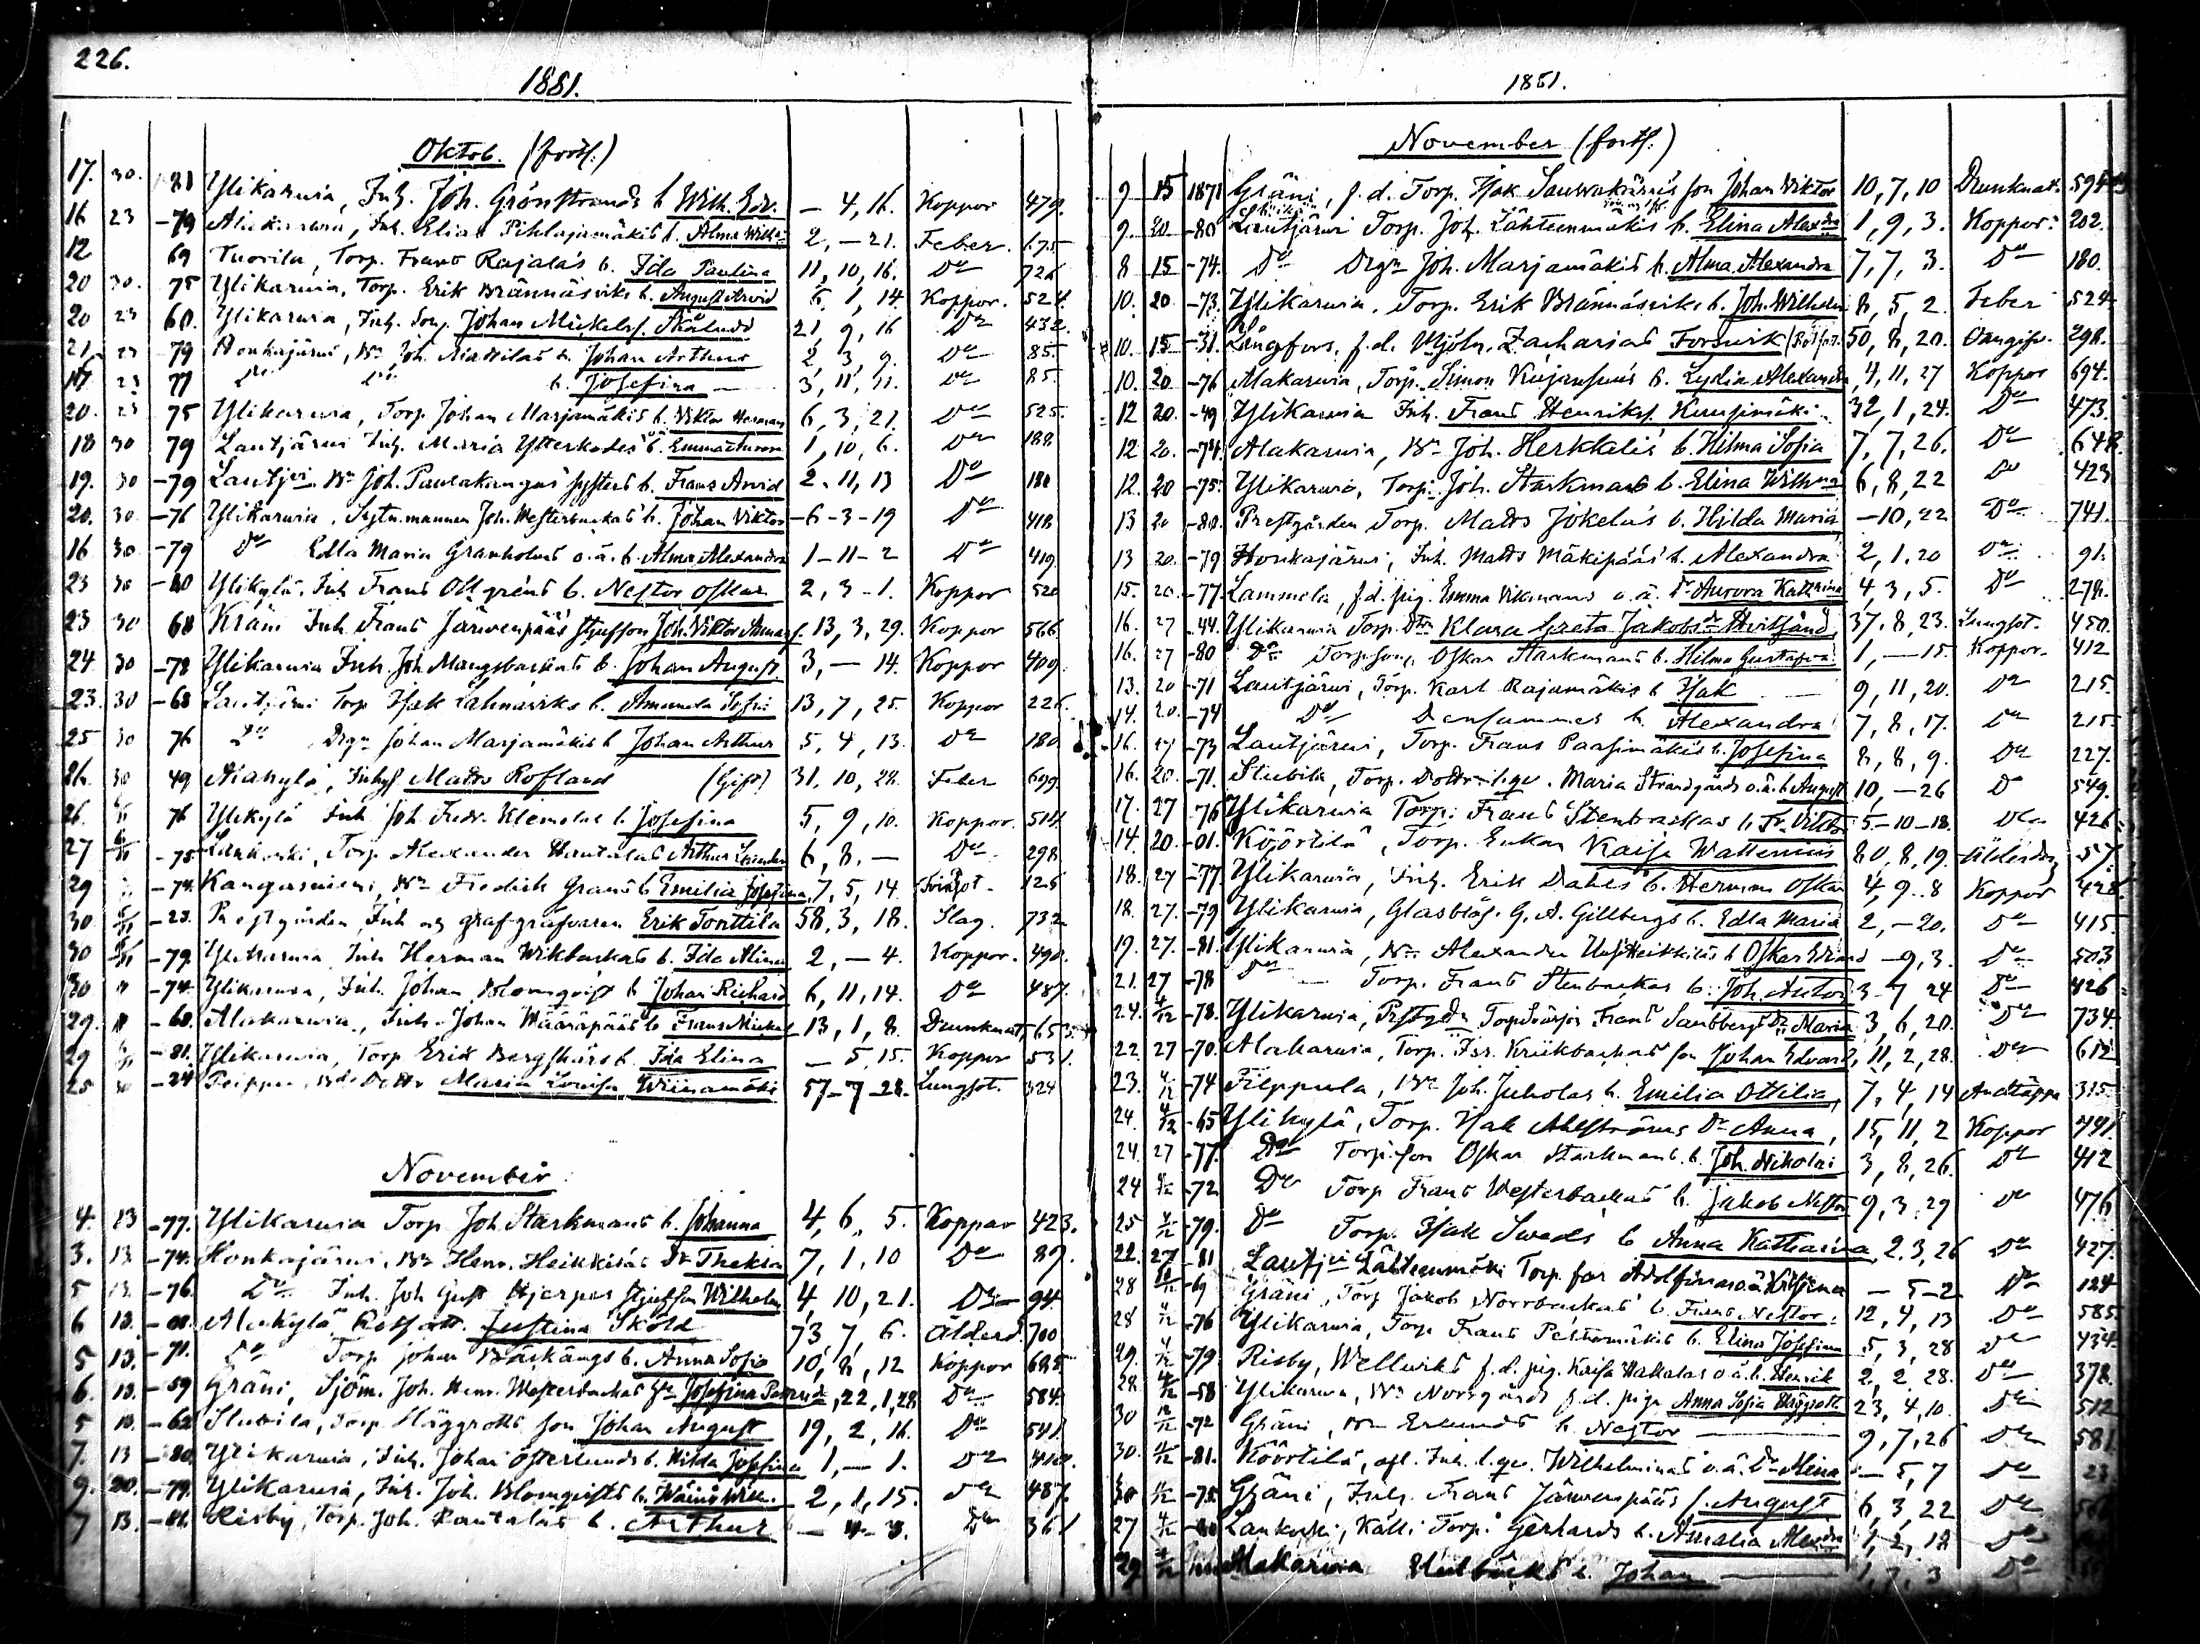 226.
1881.
Oktob. (forts.)
17. 30. 81 Ylikarvia, Inh. Joh. Grönstrands b. Wilh. Edv. — 4, 16. Koppor 479.
16 23 -79 Alakarvia, Inh. Elias Pihlajamäkis b. Alma Wilh. 2, — 21. Feber. 675
12 69 Tuorila, Torp. Frans Rajalas b. Ida Paulina 11, 10, 16. Do 726
20 30. 75 Ylikarvia, Torp. Erik Brännäsviks b. August Arvid 6, 1, 14 Koppor. 524
20 23 60. Ylikarvia, Inh. Son Johan Mickelss. Stålund 21, 9, 16 Do 432.
21 23 79 Honkajärvi, Bn Joh. b. Johan Arthur 2 3 9. Do 85.
17. 23 77 Do Do b. Josefina — 3, 11, 11. Do 85.
20. 23 75 Ylikarvia, Torp. Johan Marjamäkis b. Viktor Herman 6, 3, 21. Do 525.
18 30 79 Lautjärvi Inh. Maria Ytterkodes b. Emma Aurora 1, 10, 6. Do 188.
19. 30 -79 Lautjvi Bn Joh. Paulakangas systers b. Frans Arvid 2. 11, 13 Do 180
20. 30. -76 Ylikarvia, Joh. Westerbackas b. Johan Viktor -6-3-19 Do 418
16 30 -79 Do Edla Maria Granholms o.ä. b. Alma Alexandra 1-11-2 Do 419
23 30 -80 Ylikylä, Inh. Frans Ollgréns b. Nestor Oskar 2, 3 -1. Koppor 520
23 30 68 Gräni Inh. Frans Järvenpääs styfson Joh. Viktor 13, 3, 29. Koppor 566
24. 30 -78 Ylikarvia Inh. Joh. Mangsbackas b. Johan August. 3, — 14. Koppor 409.
23. 30 -68 Lautjärvi Torp Isak Lahnaviks b. Amanda Sofia 13, 7, 25. Koppor 226.
25 30 76 Do Drgn Johan Marjamäkis b Johan Arthur 5, 4, 13. Do 180
26. 30 49 Alakylä, Inhys. Matts Rosland (Gift) 31, 10, 28. Feber 699
26. 76 Ylikylä Inh. Joh. Fredr. Klemolas b. Josefina 5, 9, 10. Koppor. 514.
27 -75 Lankoski, Torp. Alexander Hautalas Arthur 6, 8, — Do 298
29 -74. Kangasniemi, Bn Fredrik Grans b Emilia Josefina 7, 5, 14. 125
30. -23. Prestgården, Inh. och grafgräfvaren Erik Tonttila 58, 3, 18. Slag. 732
30 -79. Ylikarvia, Inh Herman Wikbackas b. Ida Alina 2, — 4. Koppor. 490.
30 -74. Ylikarvia, Inh. Johan Blomqvist b Johan Richard 6, 11, 14. Do 487.
29. -68. Alakarvia, Inh. Johan Määräpääs b. Frans Mickel 13, 1, 8. Drunknat, 653.
29 -81. Ylikarvia, Torp Erik Bergskärs b. Ida Elina — 5, 15. Koppor 531.
25 30 -24 Peippu, Bde Dottr Maria Lovisa Wiinamäki 57-7-28. Lungsot. 324
November
4. 13 -77. Ylikarvia Torp Joh. Starkmans b. Johanna 4, 6, 5. Koppor 423.
3. 13 -74. Honkajärvi, Bn Henr. Heikkilas Dr Thekla 7, 1, 10 Do 87.
5 13. -76. Do Inh. Joh Gust Hjerpes styfson Wilhelm 4, 10, 21. Do 94.
6 13. Alakylä Rotfatt. Justina Sköld 73, 7, 6. Ålderd. 700
5 13. -71. Do Torp Johan Båskängs b. Anna Sofia 10, 8, 12 Koppor 685.
6. 13. -59 Gräni, Sjöm. Joh. Henr. Westerbackas hu Josefina 22, 1, 28 Do 584.
5 13. -62 Stubila, Torp. Häggrotts son Johan August 19, 2, 16. Do 541.
7. 13 -80. Ylikarvia, Inh. Johan Österlunds b. Hilda Josefina 1, — 1. Do
9. 20. -79. Ylikarvia, Inh. Joh. Blomqvists b. Wäinö Wilh. 2, 1, 15. Do 487.
7 13. -81. Risby, Torp. Joh. Rantalas b. Arthur — 4- 3. Do 361
1881.
November (forts.)
9 15 1871 Gräni, f.d. Torp. Isak son Johan Viktor 10, 7, 10 Drunknat. 594
9. 20. -80 Lautjärvi Torp. Joh. Lähteenmäkis b. Elina Alexdra 1, 9, 3. Koppor: 202.
8 15 -74. Do Drgn Joh. Marjamäkis b. Alma Alexandra 7, 7, 3. Do 180.
10. 20 -73. Ylikarvia, Torp. Erik Brännäsviks b. Joh. Wilhelm 8, 5, 2. Feber 524
10. 15 -31. Långfors, f.d. Mjöln. Zacharias Forsvik 50, 8, 20. 298.
10. 20 -76 Alakarvia, Torp. Simon Kujansuus b. Lydia Alexandra 4, 11, 27 Koppor 694.
12 20. -49 Ylikarvia Inh. Frans Henrikss. Kuusimäki 32, 1, 24. Do 473.
12 20. -74. Alakarvia, Bn Joh. Herkkelis b. Hilma Sofia 7, 7, 26. Do 648.
12. 20 -75. Ylikarvia, Torp. Joh. Starkmans b. Elina Wilhma 6, 8, 22 Do 423
13 20 -80. Prestgården Torp. Matts Jokelas b. Hilda Maria -10, 22 Do 741.
13 20. -79 Honkajärvi, Inh. Matts Mäkipääs b. Alexandra 2, 1. 20 Do 91.
15. 20. -77. Lammela, f.d. pig. Emma Vikmans o.ä. Dr Aurora Kathrina 4, 3, 5. Do 278.
16. 27 -44. Ylikarvia Torp. Dtr Klara Greta Jakobsdr 37. 8, 23. Lungsot. 450.
16. 27 -80 Do Torpson, Oskar Starkmans b. Hilma Gustafva 1, — 15. Koppor. 412
13. 20 -71 Lautjärvi, Torp. Karl Rajamäkis b Isak — 9, 11, 20. Do 215.
14. 20. -74 Do Densammes b. Alexandra 7, 8, 17. Do 215
16. 27 -73 Lautjärvi, Torp. Frans Paasimäkis b. Josefina 8, 8, 9. Do 227.
16. 20. -71. Stubila, Torp. Dottr Maria Strandgårds o.ä. b August 10, — 26 Do 549.
17. 27 -76 Ylikarvia Torp. Frans Stenbackas b. Fr. Viktor 5-10-18. Do 426.
14. 20. -01. Köörtilä, Torp. Enkan Kaisa Wallenius 80, 8, 19. Ålderdom 57.
18. 27 -77. Ylikarvia, Inh. Erik Dahls b. Herman Oskar 4, 9. 8 Koppor 428.
18. 27. -79 Ylikarvia, Glasblås. G. A. Gillbergs b. Edla Maria 2, -20. Do 415.
19. 27. -81. Ylikarvia, Bn Alexander b Oskar Edvard -9, 3. Do 503
21. 27 -78 Do — Torp. Frans Stenbackas b. Joh. Anton 3-7 24 Do 426
24. 4/12 -78. Ylikarvia, Frans Sandbergs Dr Maria 3, 6, 20. Do 734.
22. 27 -70. Alakarvia, Torp. Isr. Kriikbackas son Johan Edvard, 11, 2, 28. Do 612
23. 4/12 -74 Filppula, Bn Joh. Juholas b. Emilia Ottilia, 7, 4, 14 Andtäppa 315.
24. 4/12 -65 Ylikylä, Torp. Isak Ahlströms Dr Anna, 15, 11, 2 Koppor 441.
24. 27 -77. Do Torp.son Oskar Starkmans b. Joh. Nikolai 3, 8, 26. Do 412
24 4/12 -72 Do Torp Frans Westerbackas b. Jakob Nestor 9, 3, 29 Do 476
25 4/12 -79. Do Torp. Isak Sweds b Anna Katharina, 2. 3, 26 Do 427.
22. 27 -81 Lautjvi Lähteenmäki Torp. — 5-2 Do 124
28 -69 Gräni, Torp Jakob Norrbackas b. Frans Nestor. 12, 4, 13 Do 585.
28 4/12 -76 Ylikarvia, Torp. Frans Petäsmäkis b. Elina Josefina 5, 3, 28 Do 434.
29. 4/12 -79. Risby, Wellviks f.d. pig. Kaisa Hakalas o.ä. b. Henrik 2, 2 28. Do 378.
28 4/12 -58 Ylikarvia, Bn Norrgårds f.d. piga Anna Sofia Häggroth 23, 4, 10. Do 512
30 -72 Gräni, Bn Erlunds b. Nestor — 9, 7, 26 Do 581.
30. 4/12 -81. Köörtilä, afl. Inh. Wilhelminas o.ä. Dr Alina — 5, 7 Do 23.
30 4/12 -75 Gräni, Inh. Frans Järvenpääs s. August 6, 3, 22 Do
27 4/12 -80 Lankoski, Källi Torp. Gerhards b. Amalia Alexdra 1, 2, 18 Do
29 4/12 Alakarvia b. Johan — 1, 7, 3 Do